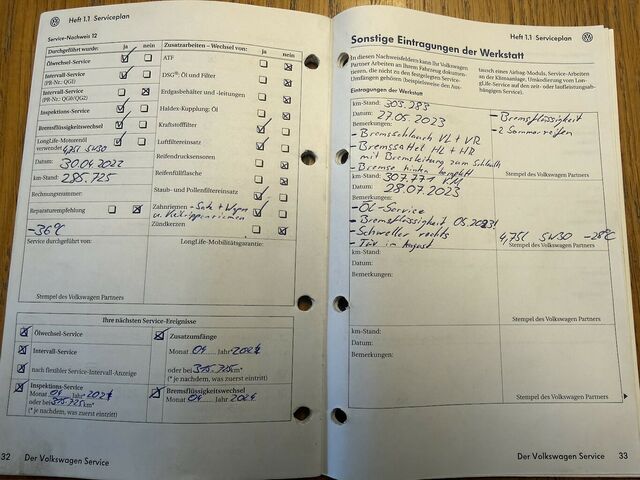 Heft 1.1 Serviceplan
Service-Nachweis 12
Durchgeführt wurde: ja nein
Ölwechsel-Service
Intervall-Service
(PR-Nr.: QG1)
Intervall-Service
(PR-Nr.: QG0/QG2)
Inspektions-Service
Bremsflüssigkeitswechsel
LongLife-Motorenöl
verwendet 4,75l 5W30
Datum: 30.04.2022
km-Stand: 295.725
Rechnungsnummer:
Reparaturempfehlung
-36°C
Zusatzarbeiten – Wechsel von: ja nein
ATF
DSG®: Öl und Filter
Erdgasbehälter und -leitungen
Haldex-Kupplung: Öl
Kraftstofffilter
Luftfiltereinsatz
Reifendrucksensoren
Reifenfüllflasche
Staub- und Pollenfiltereinsatz
Zahnriemen - Satz + Wapu
u. Keilrippenriemen
Zündkerzen
Service durchgeführt von:
LongLife-Mobilitätsgarantie:
Stempel des Volkswagen Partners
Ihre nächsten Service-Ereignisse
Ölwechsel-Service
Intervall-Service
nach flexibler Service-Intervall-Anzeige
Inspektions-Service
Monat 04 Jahr 2024
oder bei 315.725 km*
(* je nachdem, was zuerst eintritt)
Zusatzumfänge
Monat 04 Jahr 2024
oder bei 315.725 km*
(* je nachdem, was zuerst eintritt)
Bremsflüssigkeitswechsel
Monat 04 Jahr 2024
32 Der Volkswagen Service
Heft 1.1 Serviceplan
Sonstige Eintragungen der Werkstatt
In diesen Nachweisfeldern kann Ihr Volkswagen
Partner Arbeiten an Ihrem Fahrzeug dokumen-
tieren, die nicht zu den festgelegten Service-
Umfängen gehören (beispielsweise den Aus-
tausch eines Airbag-Moduls, Service-Arbeiten
an der Klimaanlage, Umkodierung vom Long-
Life-Service auf den zeit- oder laufleistungsab-
hängigen Service).
Eintragungen der Werkstatt
km-Stand: 303.283
Datum: 27.05.2023
Bemerkungen:
- Bremsschlauch VL + VR
- Bremssattel HL + HR
mit Bremsleitung zum Schlauch
- Bremse hinten komplett
- Bremsflüssigkeit
- 2 Sommerreifen
Stempel des Volkswagen Partners
km-Stand: 307.771 KM
Datum: 28.07.2023
Bemerkungen:
- Öl-Service
- Bremsflüssigkeit 05.2023!
- Schweller rechts
- Tüv im August
4,75l 5W30 -28°C
Stempel des Volkswagen Partners
km-Stand:
Datum:
Bemerkungen:
Stempel des Volkswagen Partners
km-Stand:
Datum:
Bemerkungen:
Stempel des Volkswagen Partners
Der Volkswagen Service 33